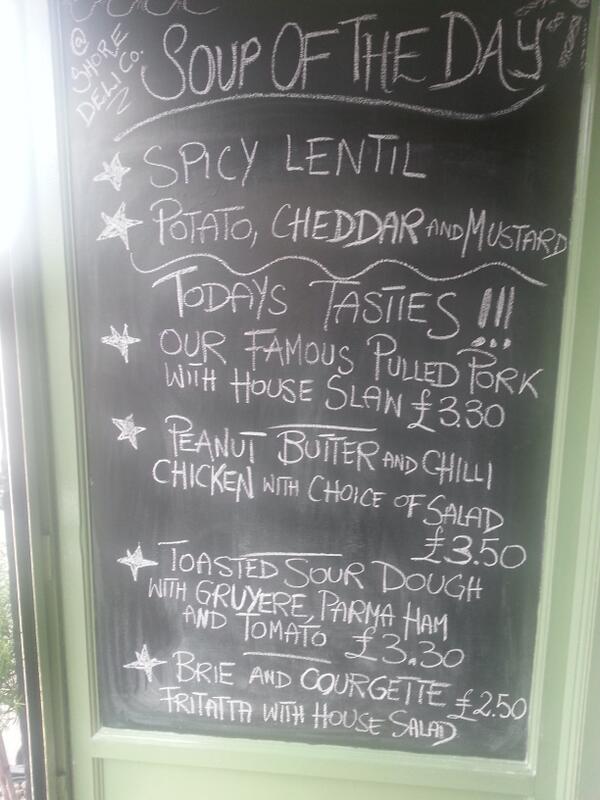 @
SHORE
DELI CO.
SOUP OF THE DAY
SPICY LENTIL
POTATO, CHEDDAR AND MUSTARD
TODAYS TASTIES !!!
OUR FAMOUS PULLED PORK
WITH HOUSE SLAW £3.30
PEANUT BUTTER AND CHILLI
CHICKEN WITH CHOICE OF SALAD
£3.50
TOASTED SOUR DOUGH
WITH GRUYERE, PARMA HAM
AND TOMATO £3.30
BRIE AND COURGETTE £2.50
FRITATTA WITH HOUSE SALAD